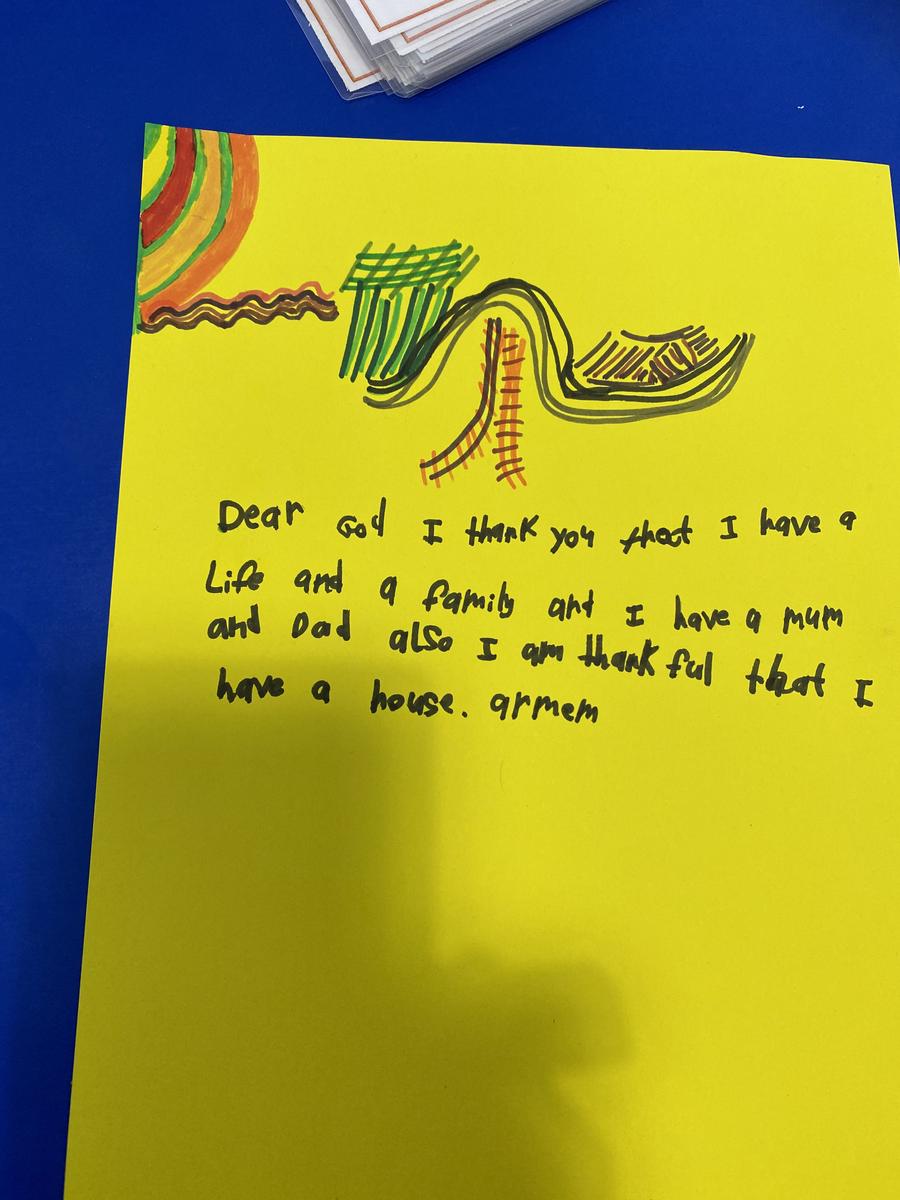 Dear God I thank you that I have a
Life and a family and I have a mum
and Dad also I am thank ful that I
have a house. armem